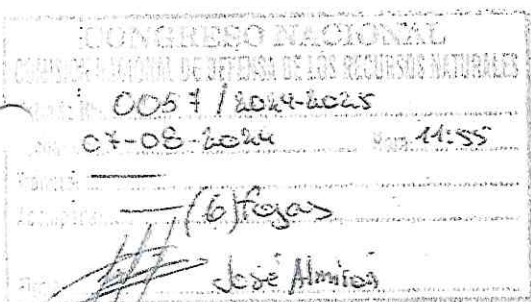 CONGRESO NACIONAL
COMISIÓN NACIONAL DE DEFENSA DE LOS RECURSOS NATURALES
0057 / 2024-2025
07-08-2024 Hora: 11:55
(6) fojas
José Almirón